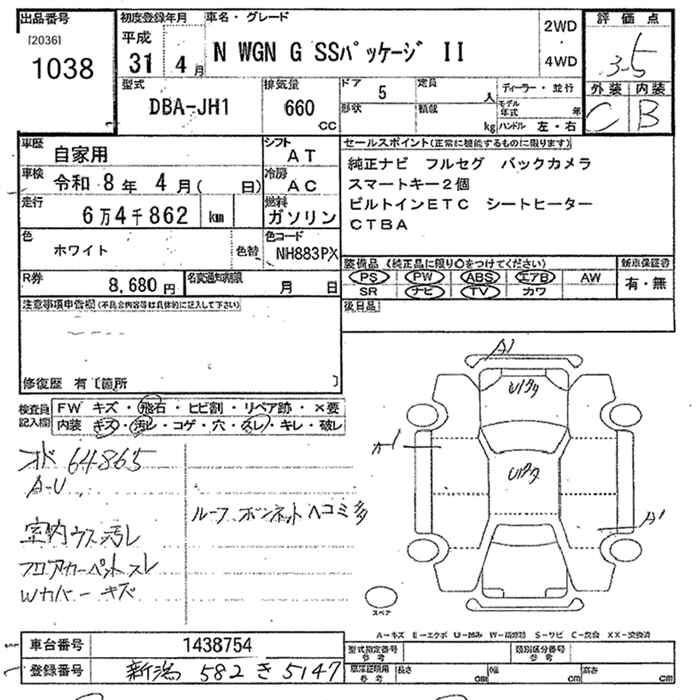 出品番号
[2036]
1038
初度登録年月
平成
31 4月
車名・グレード
N WGN G SSパッケージ II
2WD
・
4WD
評価点
3.5
外装 内装
C B
型式
DBA-JH1
排気量
660
CC
ドア 5
形状
定員 人
積載 kg
ディーラー・並行
モデル年式 年
ハンドル 左・右
車歴
自家用
シフト
AT
車検
令和 8年 4月( 日)
冷房
AC
走行
6万4千862 km
燃料
ガソリン
色
ホワイト
色替
色コード
NH883PX
R券
8,680円
名変通知期限
月 日
セールスポイント(正常に機能するものに限ります)
純正ナビ フルセグ バックカメラ
スマートキー2個
ビルトインETC シートヒーター
CTBA
装備品 (純正品に限り○をつけてください)
PS PW ABS エアB AW
SR ナビ TV カワ
新車保証書
有・無
後日品
注意事項申告欄(不具合内容等は具体的に記入して下さい)
修復歴 有〔箇所 〕
検査員記入欄
FW キズ・飛石・ヒビ割・リペア跡・×要
内装 キズ・汚レ・コゲ・穴・スレ・キレ・破レ
オド 64865
A-U
室内ウス汚レ
フロアカーペットスレ
Wカバーキズ
ルーフ ボンネット ヘコミ多
A1
Uワクワ
A1
Uワクワ
A1
スペア
A-キズ E-エクボ U-凹み W-補修跡 S-サビ C-腐食 XX-交換済
車台番号 1438754
登録番号 新潟 582 き 5147
型式指定番号
参考
類別区分番号
参考
車庫証明用
参考
長さ cm
幅 cm
高さ cm